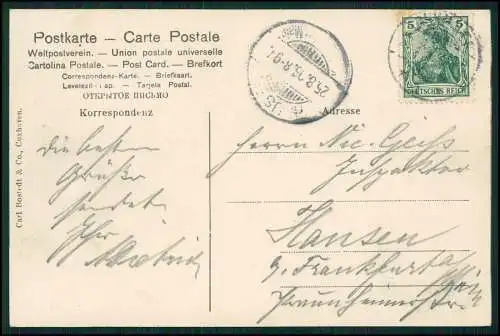 Postkarte – Carte Postale
Weltpostverein. – Union postale universelle
Cartolina Postale. – Post Card. – Brefkort
Correspondenz-Karte. – Briefkaart.
Levelező-Lap. – Tarjeta Postal.
ОТКРЫТОЕ ПИСЬМО
Korrespondenz
Adresse
Carl Bostedt & Co., Cuxhaven.
5 5
DEUTSCHES REICH
25.8.06.8-9V.
Die besten
Grüße
sendet
Ihr
Herrn Nic. Geiß
Inspektor
Hausen
b. Frankfurt a/M
Praunheimerstr.